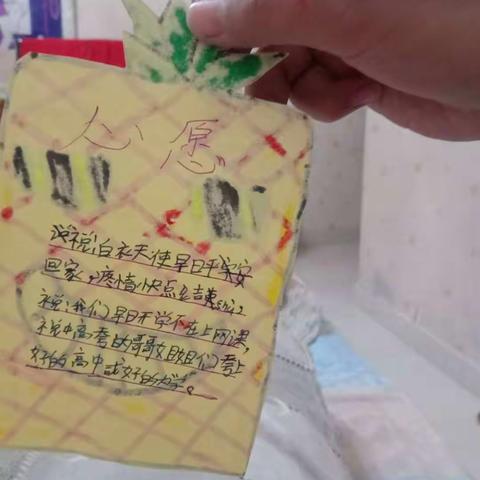 心愿
祝:白衣天使早日平安
回家,疫情快点去
祝:我们早日开学不在上网课,
祝中高考的哥哥姐姐们考上
好的高中或好的大学。